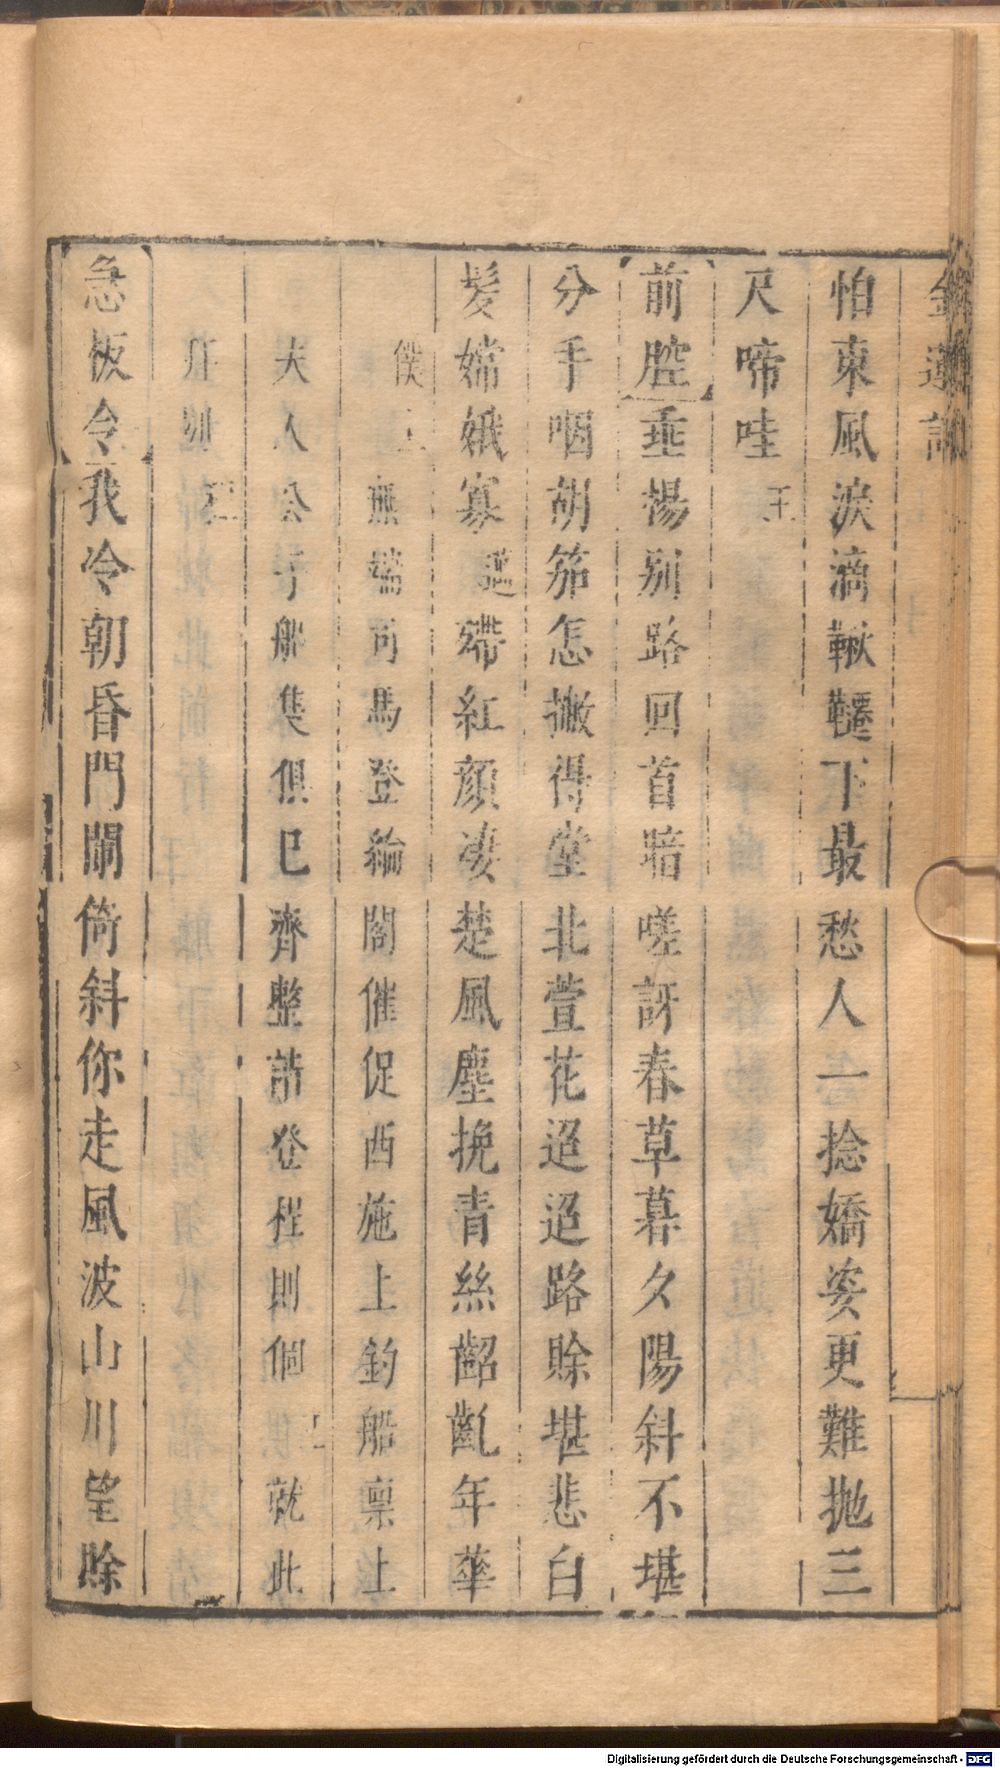 金蓮記
怕東風淚滴鞦韆下最愁人一捻嬌姿更難拋三
尺啼哇 王
前腔 垂楊別路回首暗嗟訝春草暮夕陽斜不堪
分手咽胡笳怎撇得堂北萱花迢迢路賒堪悲白
髮嫦娥寡 殢紅顏凄楚風塵挽青絲齠齔年華
僕上 無端司馬登綸閣催促西施上釣船禀上
夫人公子船隻俱已齊整請登程則個 就此
拜別
急板令 我冷朝昏門闌倚斜你走風波山川望賒
Digitalisierung gefördert durch die Deutsche Forschungsgemeinschaft - DFG